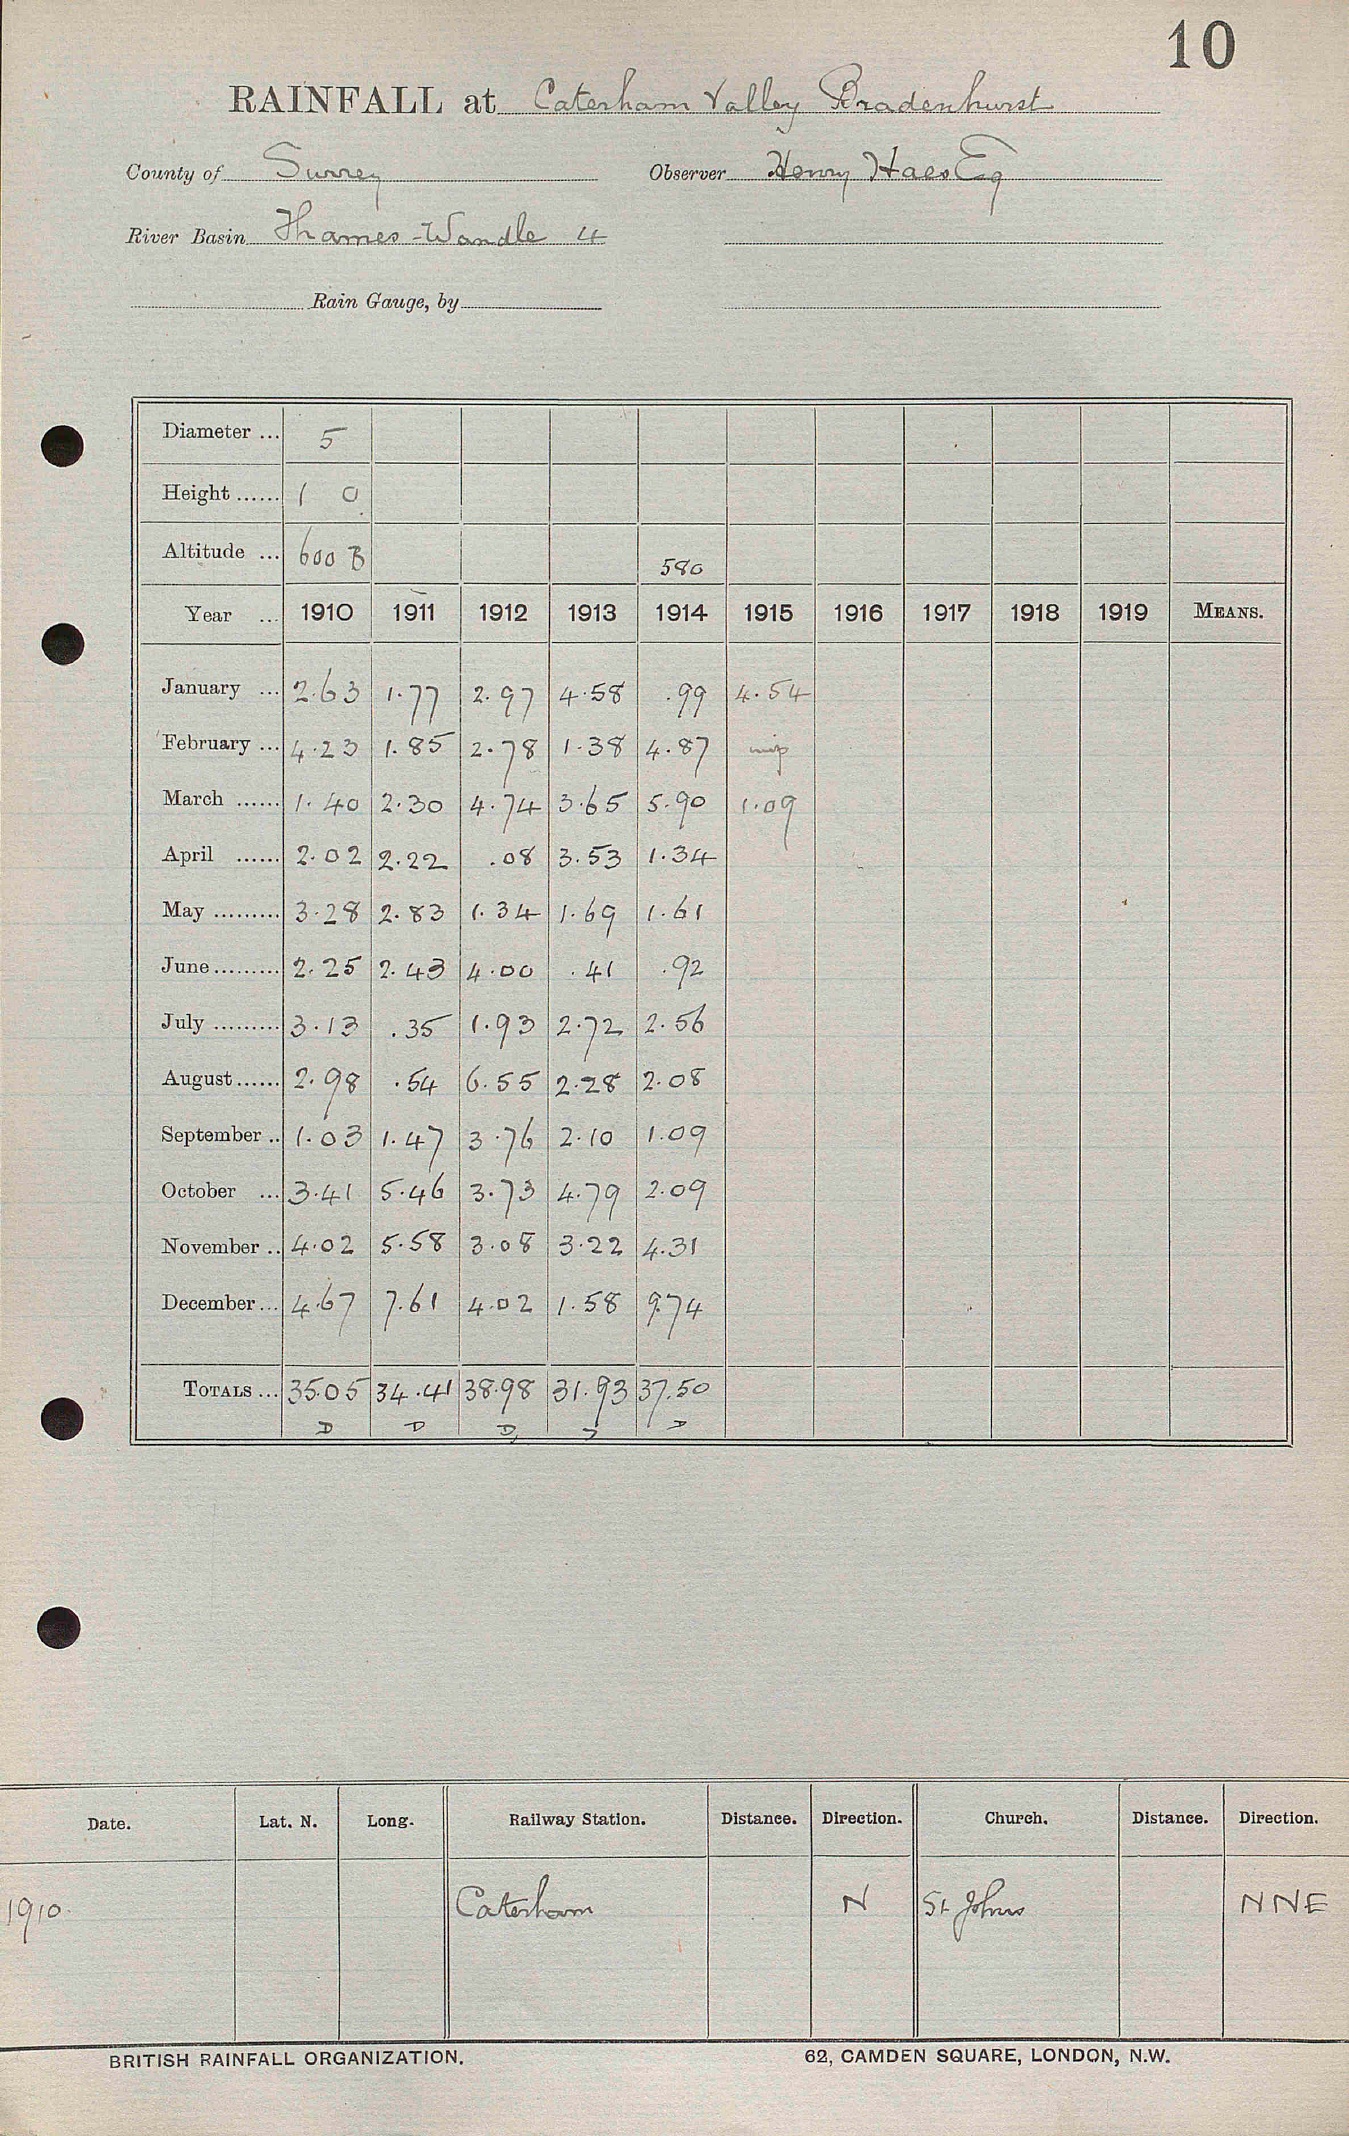 10
RAINFALL at Caterham Valley Bradenhurst
County of Surrey Observer Henry Haes Esq
River Basin Thames-Wandle 4
Rain Gauge, by
Diameter ... 5
Height ...... 1 0
Altitude ... 600 B 580
Year ... 1910 1911 1912 1913 1914 1915 1916 1917 1918 1919 MEANS.
January ... 2.63 1.77 2.97 4.58 .99 4.54
February ... 4.23 1.85 2.78 1.38 4.87
March ...... 1.40 2.30 4.74 3.65 5.90 1.09
April ...... 2.02 2.22 .08 3.53 1.34
May ......... 3.28 2.83 1.34 1.69 1.61
June ......... 2.25 2.43 4.00 .41 .92
July ......... 3.13 .35 1.93 2.72 2.56
August ...... 2.98 .54 6.55 2.28 2.08
September .. 1.03 1.47 3.76 2.10 1.09
October ... 3.41 5.46 3.73 4.79 2.09
November .. 4.02 5.58 3.08 3.22 4.31
December ... 4.67 7.61 4.02 1.58 9.74
TOTALS ... 35.05 34.41 38.98 31.93 37.50
D D D D
Date. Lat. N. Long. Railway Station. Distance. Direction. Church. Distance. Direction.
1910. Caterham N St Johns NNE
BRITISH RAINFALL ORGANIZATION. 62, CAMDEN SQUARE, LONDON, N.W.